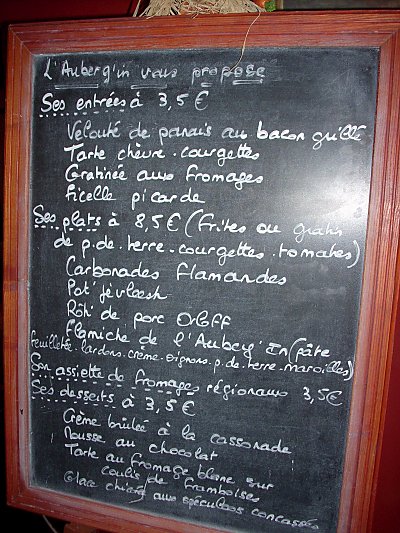 L'Auberg'in vous propose
Ses entrées à 3,5 €
Velouté de panais au bacon grillé
Tarte chèvre-courgettes
Gratinée aux fromages
Ficelle picarde
Ses plats à 8,5 € (frites ou gratin
de p.de.terre-courgettes-tomates)
Carbonades flamandes
Pot'je vleesh
Rôti de porc Orloff
Flamiche de l'Auberg'In (pâte
feuilletée-lardons-crème-oignons-p.de.terre-maroilles)
Son assiette de fromages régionaux 3,5 €
Ses desserts à 3,5 €
Crème brûlée à la cassonade
Mousse au chocolat
Tarte au fromage blanc sur
coulis de framboises
Glace chicorée aux spéculoos concassés